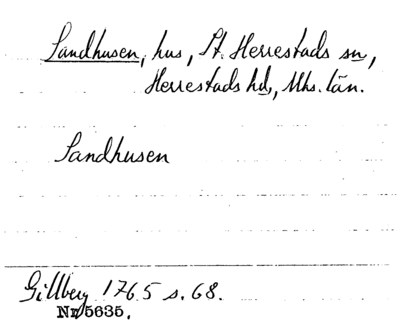 Sandhusen, hus, St. Herrestads sn,
Herrestads hd, Mhs. län.
Sandhusen
Gillberg 1765 s. 68.
Nr 5635.